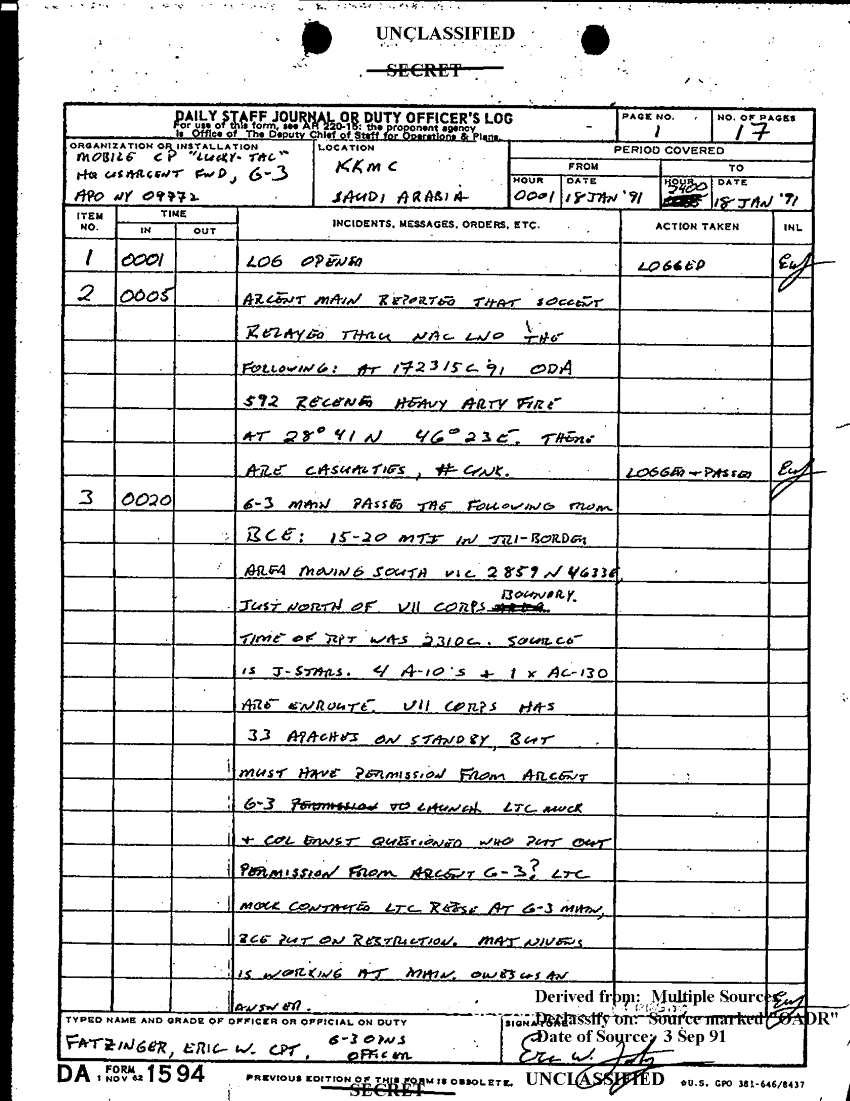 UNCLASSIFIED
SECRET
DAILY STAFF JOURNAL OR DUTY OFFICER'S LOG
For use of this form, see AR 220-15; the proponent agency
is Office of The Deputy Chief of Staff for Operations & Plans.
PAGE NO.
1
NO. OF PAGES
17
ORGANIZATION OR INSTALLATION
MOBILE CP "LUCKY-TAC"
HQ USARCENT FWD, G-3
APO NY 09772
LOCATION
KKMC
SAUDI ARABIA
PERIOD COVERED
FROM
TO
HOUR
0001
DATE
18 JAN '91
HOUR
2400
DATE
18 JAN '91
ITEM NO.
TIME
IN
OUT
INCIDENTS, MESSAGES, ORDERS, ETC.
ACTION TAKEN
INL
1 0001 LOG OPENED LOGGED
2 0005 ARCENT MAIN REPORTED THAT SOCCENT
RELAYED THRU NAC LNO THE
FOLLOWING: AT 172315C '91 ODA
592 RECEIVED HEAVY ARTY FIRE
AT 28° 41 N 46° 23 E. THERE
ARE CASUALTIES, # UNK. LOGGED + PASSED
3 0020 G-3 MAIN PASSED THE FOLLOWING FROM
BCE: 15-20 MTI IN TRI-BORDER
AREA MOVING SOUTH VIC 2859 N 4633E,
JUST NORTH OF VII CORPS BOUNDRY.
TIME OF RPT WAS 2310C. SOURCE
IS J-STARS. 4 A-10'S + 1 x AC-130
ARE ENROUTE. VII CORPS HAS
33 APACHES ON STANDBY, BUT
MUST HAVE PERMISSION FROM ARCENT
G-3 PERMISSION TO LAUNCH. LTC MOCK
+ COL ERNST QUESTIONED WHO PUT OUT
PERMISSION FROM ARCENT G-3? LTC
MOCK CONTACTED LTC REESE AT G-3 MAIN,
BCE PUT ON RESTRICTION. MAJ NIVENS
IS WORKING AT MAIN. OWES US AN
ANSWER.
Derived from: Multiple Sources
Declassify on: Source marked "OADR"
Date of Source: 3 Sep 91
TYPED NAME AND GRADE OF OFFICER OR OFFICIAL ON DUTY
FATZINGER, ERIC W. CPT, G-3 OPNS
OFFICER
SIGNATURE
DA FORM 1 NOV 62 1594
PREVIOUS EDITION OF THIS FORM IS OBSOLETE.
SECRET
UNCLASSIFIED
U.S. GPO 381-646/8437